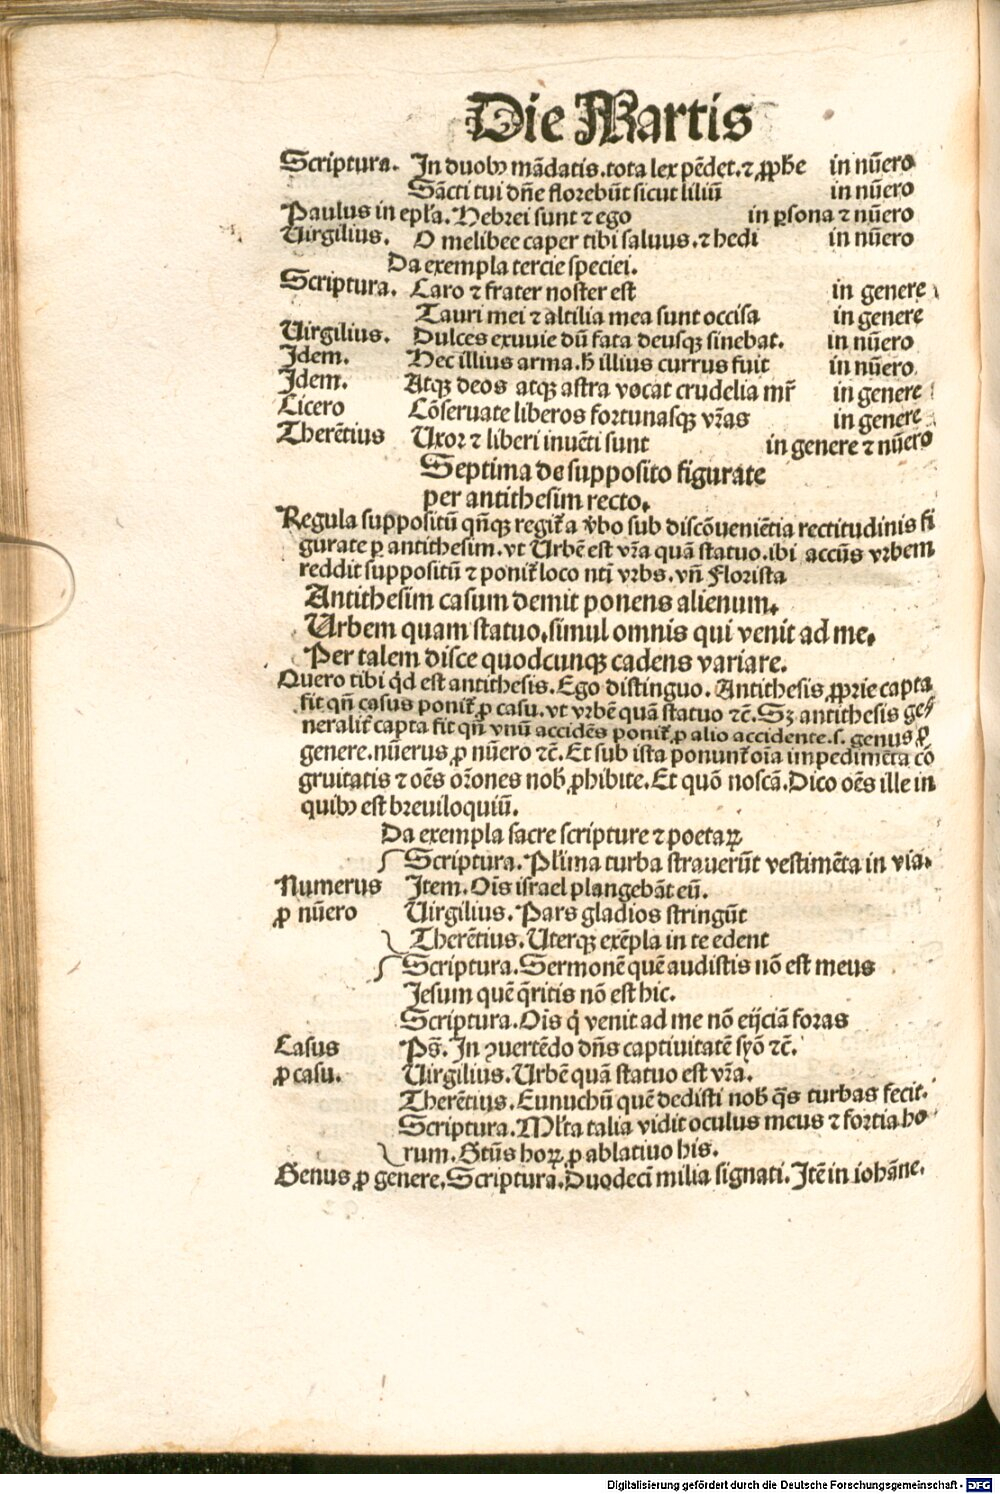 Die Martis
Scriptura. In duobꝫ mādatis.tota lex pēdet.⁊ ꝓphe in nūero
Sācti tui dn̄e florebūt sicut liliū in nūero
Paulus in epl'a. Hebrei sunt ⁊ ego in ꝑsona ⁊ nūero
Virgilius. O melibee caper tibi saluus.⁊ hedi in nūero
Da exempla tercie speciei.
Scriptura. Caro ⁊ frater noster est in genere
Tauri mei ⁊ altilia mea sunt occisa in genere
Virgilius. Dulces exuuie dū fata deusqꝫ sinebat. in nūero
Idem. Hec illius arma.h̄ illius currus fuit in nūero
Idem. Atqꝫ deos atqꝫ astra vocat crudelia mr̄ in genere
Cicero Cōseruate liberos fortunasqꝫ vr̄as in genere
Therētius Uxor ⁊ liberi inuēti sunt in genere ⁊ nūero
Septima de supposito figurate
per antithesim recto.
Regula suppositū qn̄qꝫ regit̄ a v̄bo sub discōueniētia rectitudinis fi
gurate ꝑ antithesim.vt Urbē est vr̄a quā statuo.ibi accūs vrbem
reddit suppositū ⁊ ponit̄ loco nt̄i vrbs.vn̄ Florista
Antithesim casum demit ponens alienum.
Urbem quam statuo.simul omnis qui venit ad me.
Per talem disce quodcunqꝫ cadens variare.
Quero tibi qd̄ est antithesis. Ego distinguo. Antithesis ꝓprie capta
fit qn̄ casus ponit̄ ꝓ casu.vt vrbē quā statuo ⁊c̄. Sꝫ antithesis ge⸗
neralit̄ capta fit qn̄ vnū accidēs ponit̄ ꝓ alio accidente.s. genus ꝓ
genere.nūerus ꝓ nūero ⁊c̄. Et sub ista ponunt̄ oīa impedimēta cō
gruitatis ⁊ oēs or̄ones nob̄ ꝓhibite. Et quō noscā. Dico oēs ille in
quibꝫ est breuiloquiū.
Da exempla sacre scripture ⁊ poetaꝝ
Scriptura. Pl'ima turba strauerūt vestimēta in via.
Numerus Item. Oīs israel plangebāt eū.
ꝓ nūero Virgilius. Pars gladios stringūt
Therētius. Uterqꝫ exēpla in te edent
Scriptura. Sermonē quē audistis nō est meus
Jesum quē q̄ritis nō est hic.
Scriptura. Oīs q̇ venit ad me nō eijciā foras
Casus Ps̄. In ꝯuertēdo dn̄s captiuitatē syō ⁊c̄.
ꝓ casu. Virgilius. Urbē quā statuo est vr̄a.
Therētius. Eunuchū quē dedisti nob̄ q̄s turbas fecit.
Scriptura. Ml'ta talia vidit oculus meus ⁊ fortia ho
rum. Gtūs hoꝝ ꝓ ablatiuo his.
Genus ꝓ genere. Scriptura. Duodecī milia signati. Itē in iohāne.
Digitalisierung gefördert durch die Deutsche Forschungsgemeinschaft - DFG